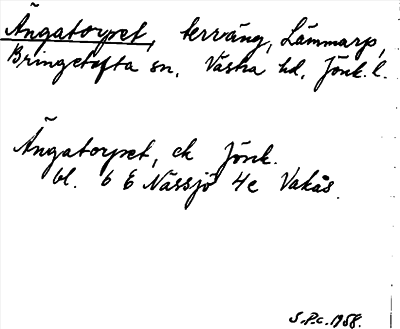 Ängatorpet, terräng, Lammarp,
Bringetofta sn, Västra hd, Jönk. l.
Ängatorpet, ek Jönk.
bl. 6 E Nässjö 4e Vakås.
S.P.c. 1958.